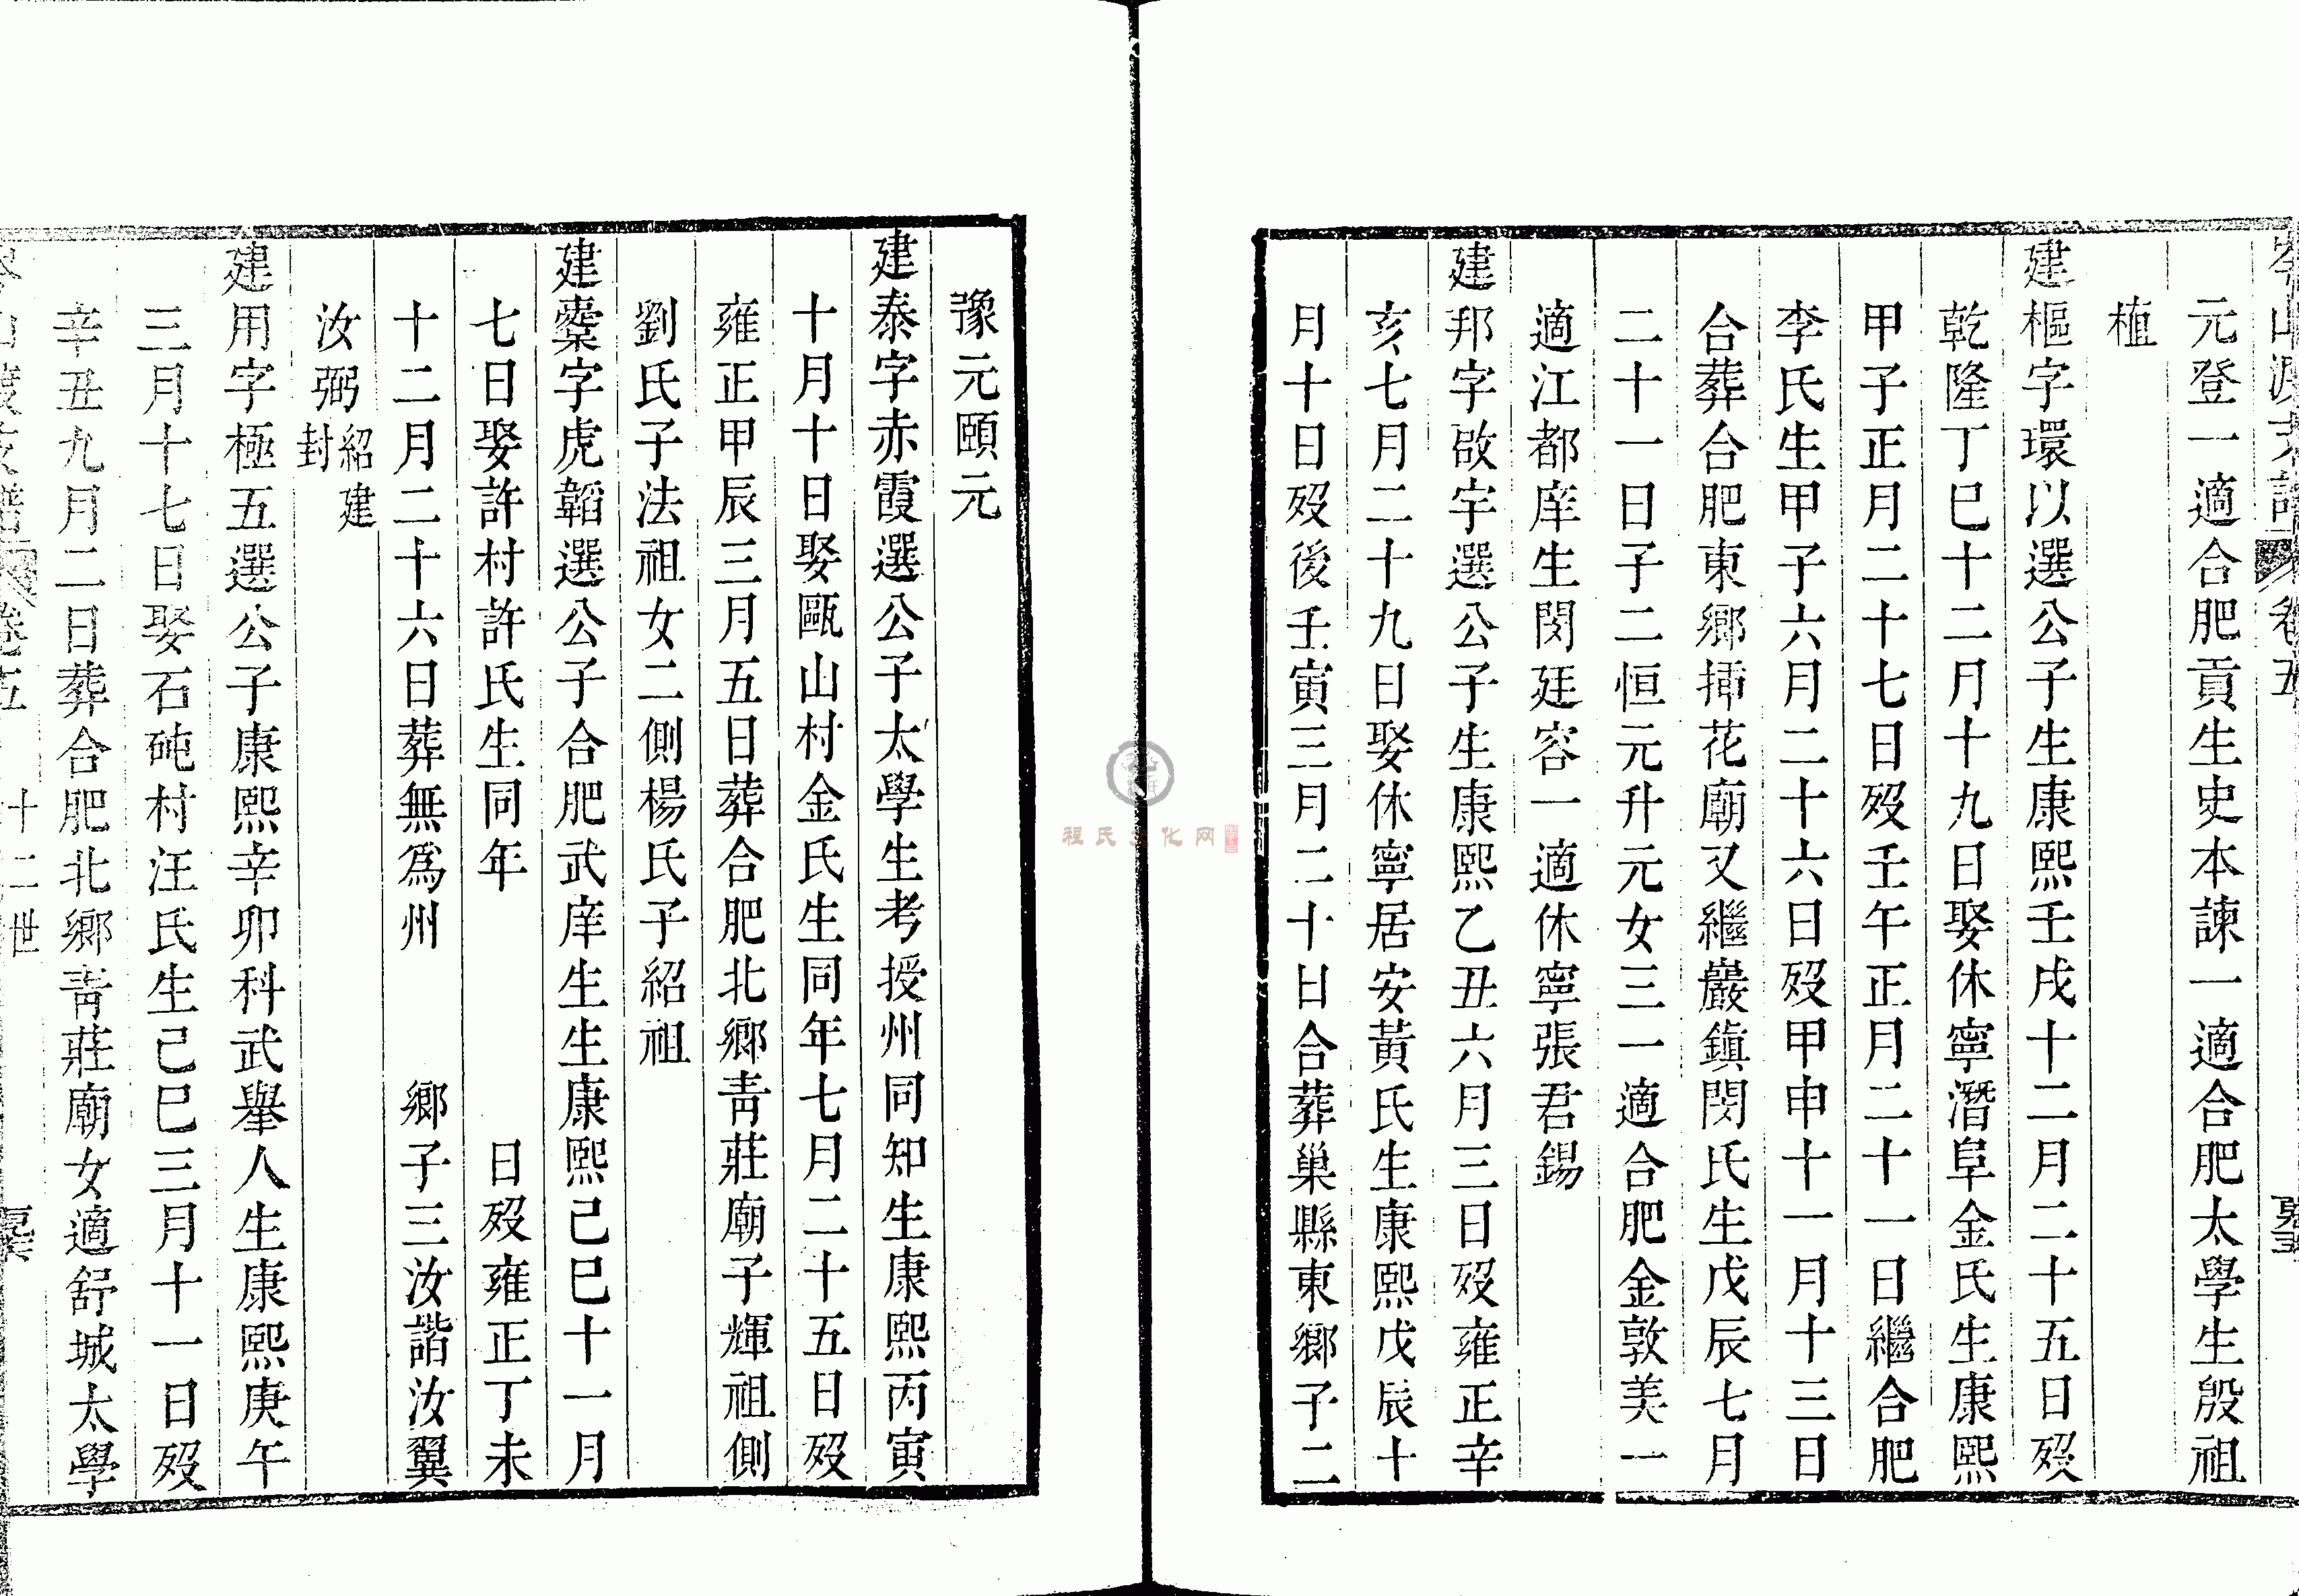 元登一適合肥貢生史本諫一適合肥太學生殷祖
植
建樞字環以選公子生康熙壬戌十二月二十五日歿
乾隆丁巳十二月十九日娶休寧潛阜金氏生康熙
甲子正月二十七日歿壬午正月二十一日繼合肥
李氏生甲子六月二十六日歿甲申十一月十三日
合葬合肥東鄉挿花廟又繼巖鎮閔氏生戊辰七月
二十一日子二恒元升元女三一適合肥金敦美一
適江都庠生閔廷容一適休寧張君錫
建邦字啟宇選公子生康熙乙丑六月三日歿雍正辛
亥七月二十九日娶休寧居安黃氏生康熙戊辰十
月十日歿後壬寅三月二十日合葬巢縣東鄉子二
豫元頤元
建泰字赤霞選公子太學生考授州同知生康熙丙寅
十月十日娶甌山村金氏生同年七月二十五日歿
雍正甲辰三月五日葬合肥北鄉青莊廟子輝祖側
劉氏子法祖女二側楊氏子紹祖
建櫜字虎韜選公子合肥武庠生生康熙己巳十一月
七日娶許村許氏生同年 日歿雍正丁未
十二月二十六日葬無為州 鄉子三汝諧汝翼
汝弼紹建封
建用字極五選公子康熙辛卯科武舉人生康熙庚午
三月十七日娶石砘村汪氏生己巳三月十一日歿
辛丑九月二日葬合肥北鄉青莊廟女適舒城太學
卷五 十二世
程氏文化网